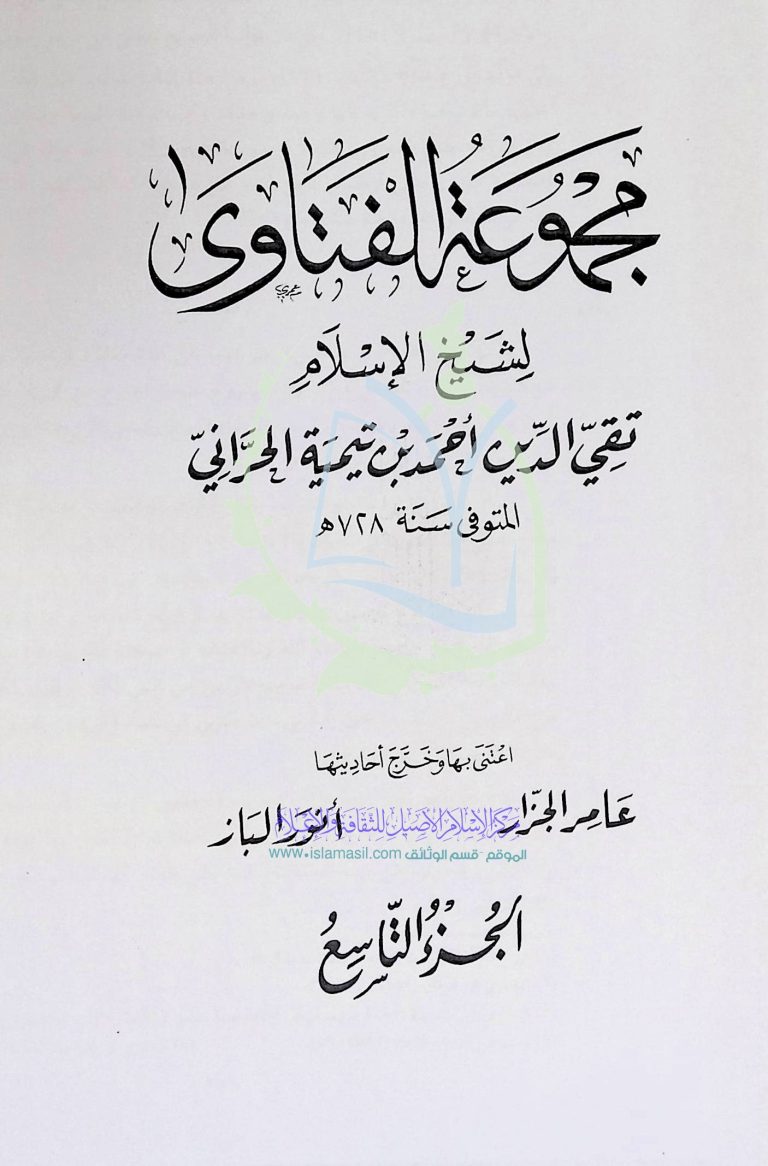 مَجْمُوعَةُ الفَتَاوَى
لِشَيْخِ الإِسْلَامِ
تَقِيِّ الدِّينِ أَحْمَدَ بْنِ تَيْمِيَةَ الحَرَّانِيِّ
المتوفى سَنَة ٧٢٨ هـ
اعْتَنَى بِهَا وَخَرَّجَ أحَادِيثَهَا
عَامِر الجَزَّار أنوَر البَاز
مركز الإسلام الأصيل للثقافة والإعلام
الموقع - قسم الوثائق www.islamasil.com
الجُزْءُ التَّاسِعُ